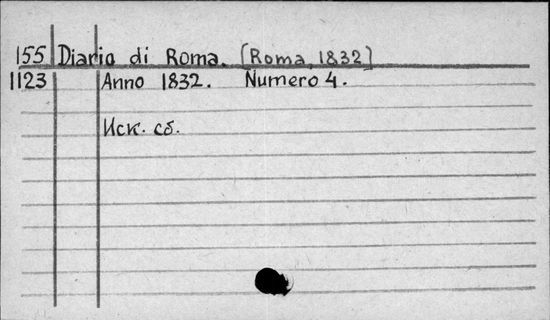 155 Diario di Roma. [Roma, 1832]
1123 Anno 1832. Numero 4.
Иск. сб.